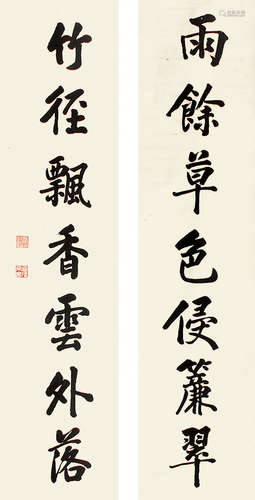 雨餘草色侵簾翠
竹徑飄香雲外落